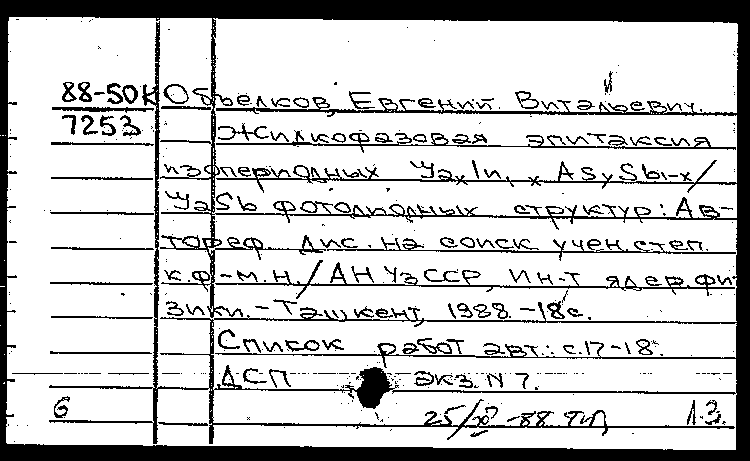 88-50К Объелков, Евгений Витальевич.
7253 Жидкофазовая эпитаксия
изопериодных YaxIn1-x AsySb1-x/
YaSb фотодиодных структур: Ав-
тореф. дис. на соиск. учен. степ.
к.ф-м.н. / АН УзССР, Ин-т ядер. фи
зики. - Ташкент, 1988. - 18 с.
Список работ авт.: с.17-18.
ДСП экз. N 7.
6 25/ -88 Л.З.